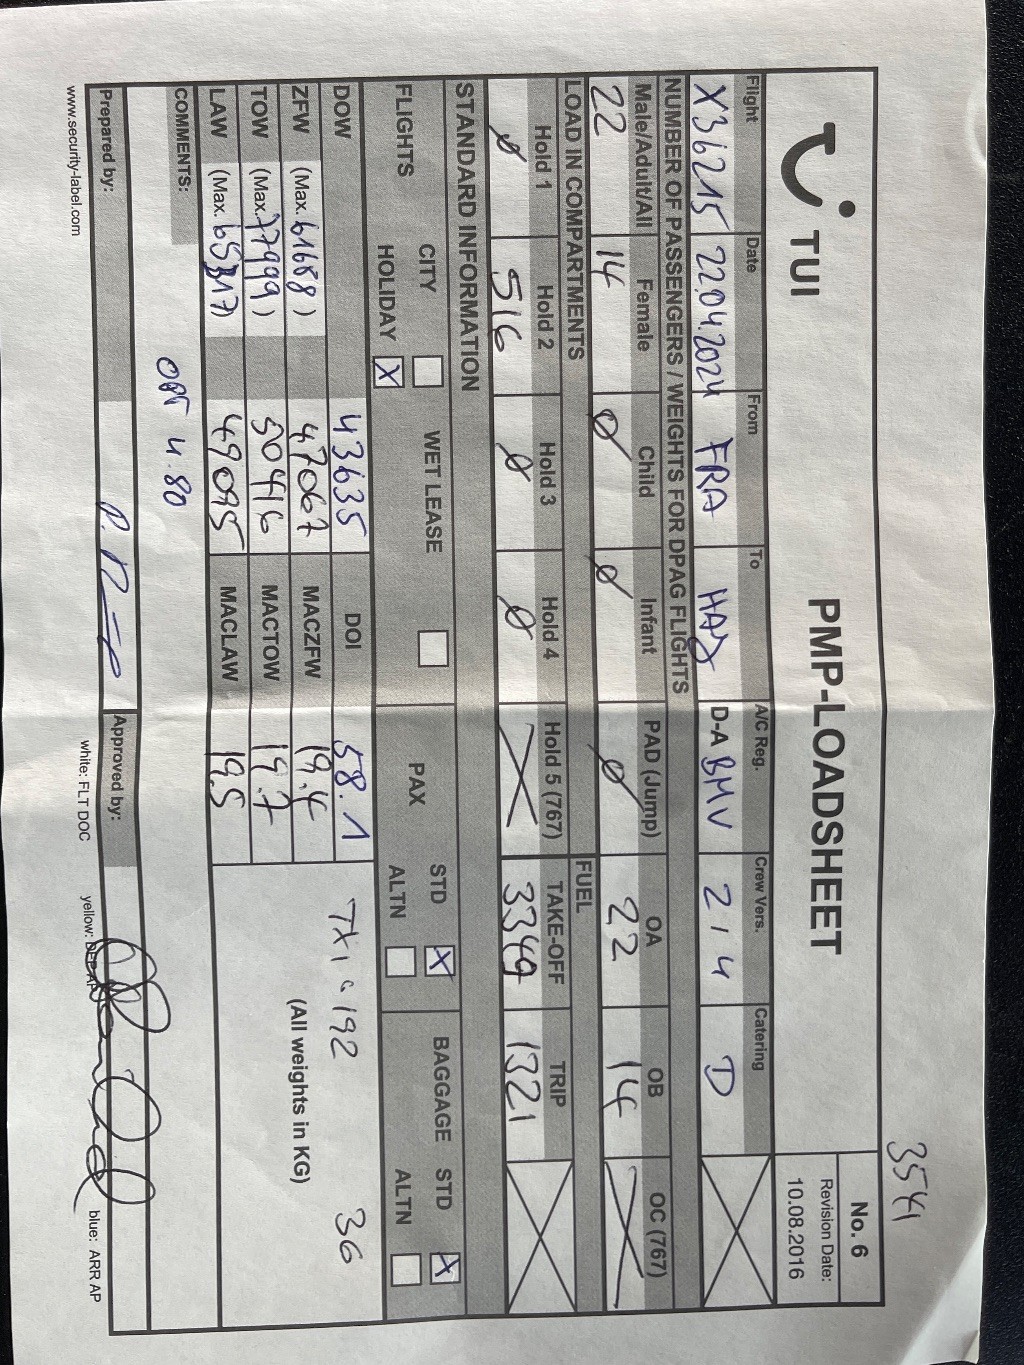 3541
TUI
PMP-LOADSHEET
No. 6
Revision Date:
10.08.2016
Flight Date From To A/C Reg. Crew Vers. Catering
X36215 22.04.2024 FRA HAJ D-A BMV 2/4 D
NUMBER OF PASSENGERS / WEIGHTS FOR DPAG FLIGHTS
Male/Adult/All Female Child Infant PAD (Jump) OA OB OC (767)
22 14 Ø Ø Ø 22 14
LOAD IN COMPARTMENTS FUEL
Hold 1 Hold 2 Hold 3 Hold 4 Hold 5 (767) TAKE-OFF TRIP
Ø 516 Ø Ø X 3349 1321
STANDARD INFORMATION
FLIGHTS CITY WET LEASE PAX STD X BAGGAGE STD X
HOLIDAY X ALTN ALTN
DOW 43635 DOI 58.1 TXI 192 36
ZFW (Max. 61688) 47067 MACZFW 19.4 (All weights in KG)
TOW (Max. 77999) 50416 MACTOW 19.7
LAW (Max. 65317) 49095 MACLAW 19.5
COMMENTS:
4.80
Prepared by: Approved by:
www.security-label.com white: FLT DOC yellow: DEP AP blue: ARR AP